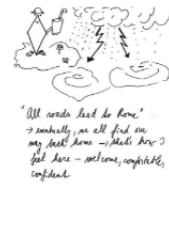 "All roads lead to Rome"
→ eventually, we all find our
my back home → that's how I
feel here – welcome, comfortable,
confident